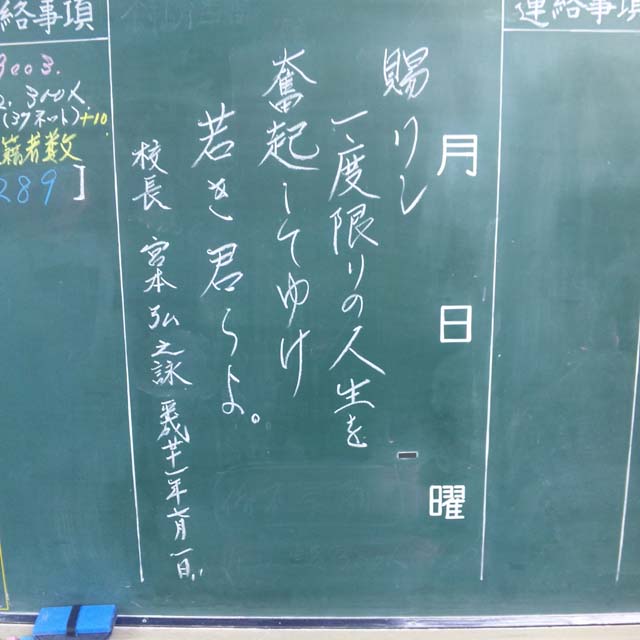 連絡事項
月 日 曜
賜りし
一度限りの人生を
奮起してゆけ
若き君らよ。
校長 宮本弘之詠 平成廿一年七月一日
絡事項
(37ネット)+10
籍者数
289]